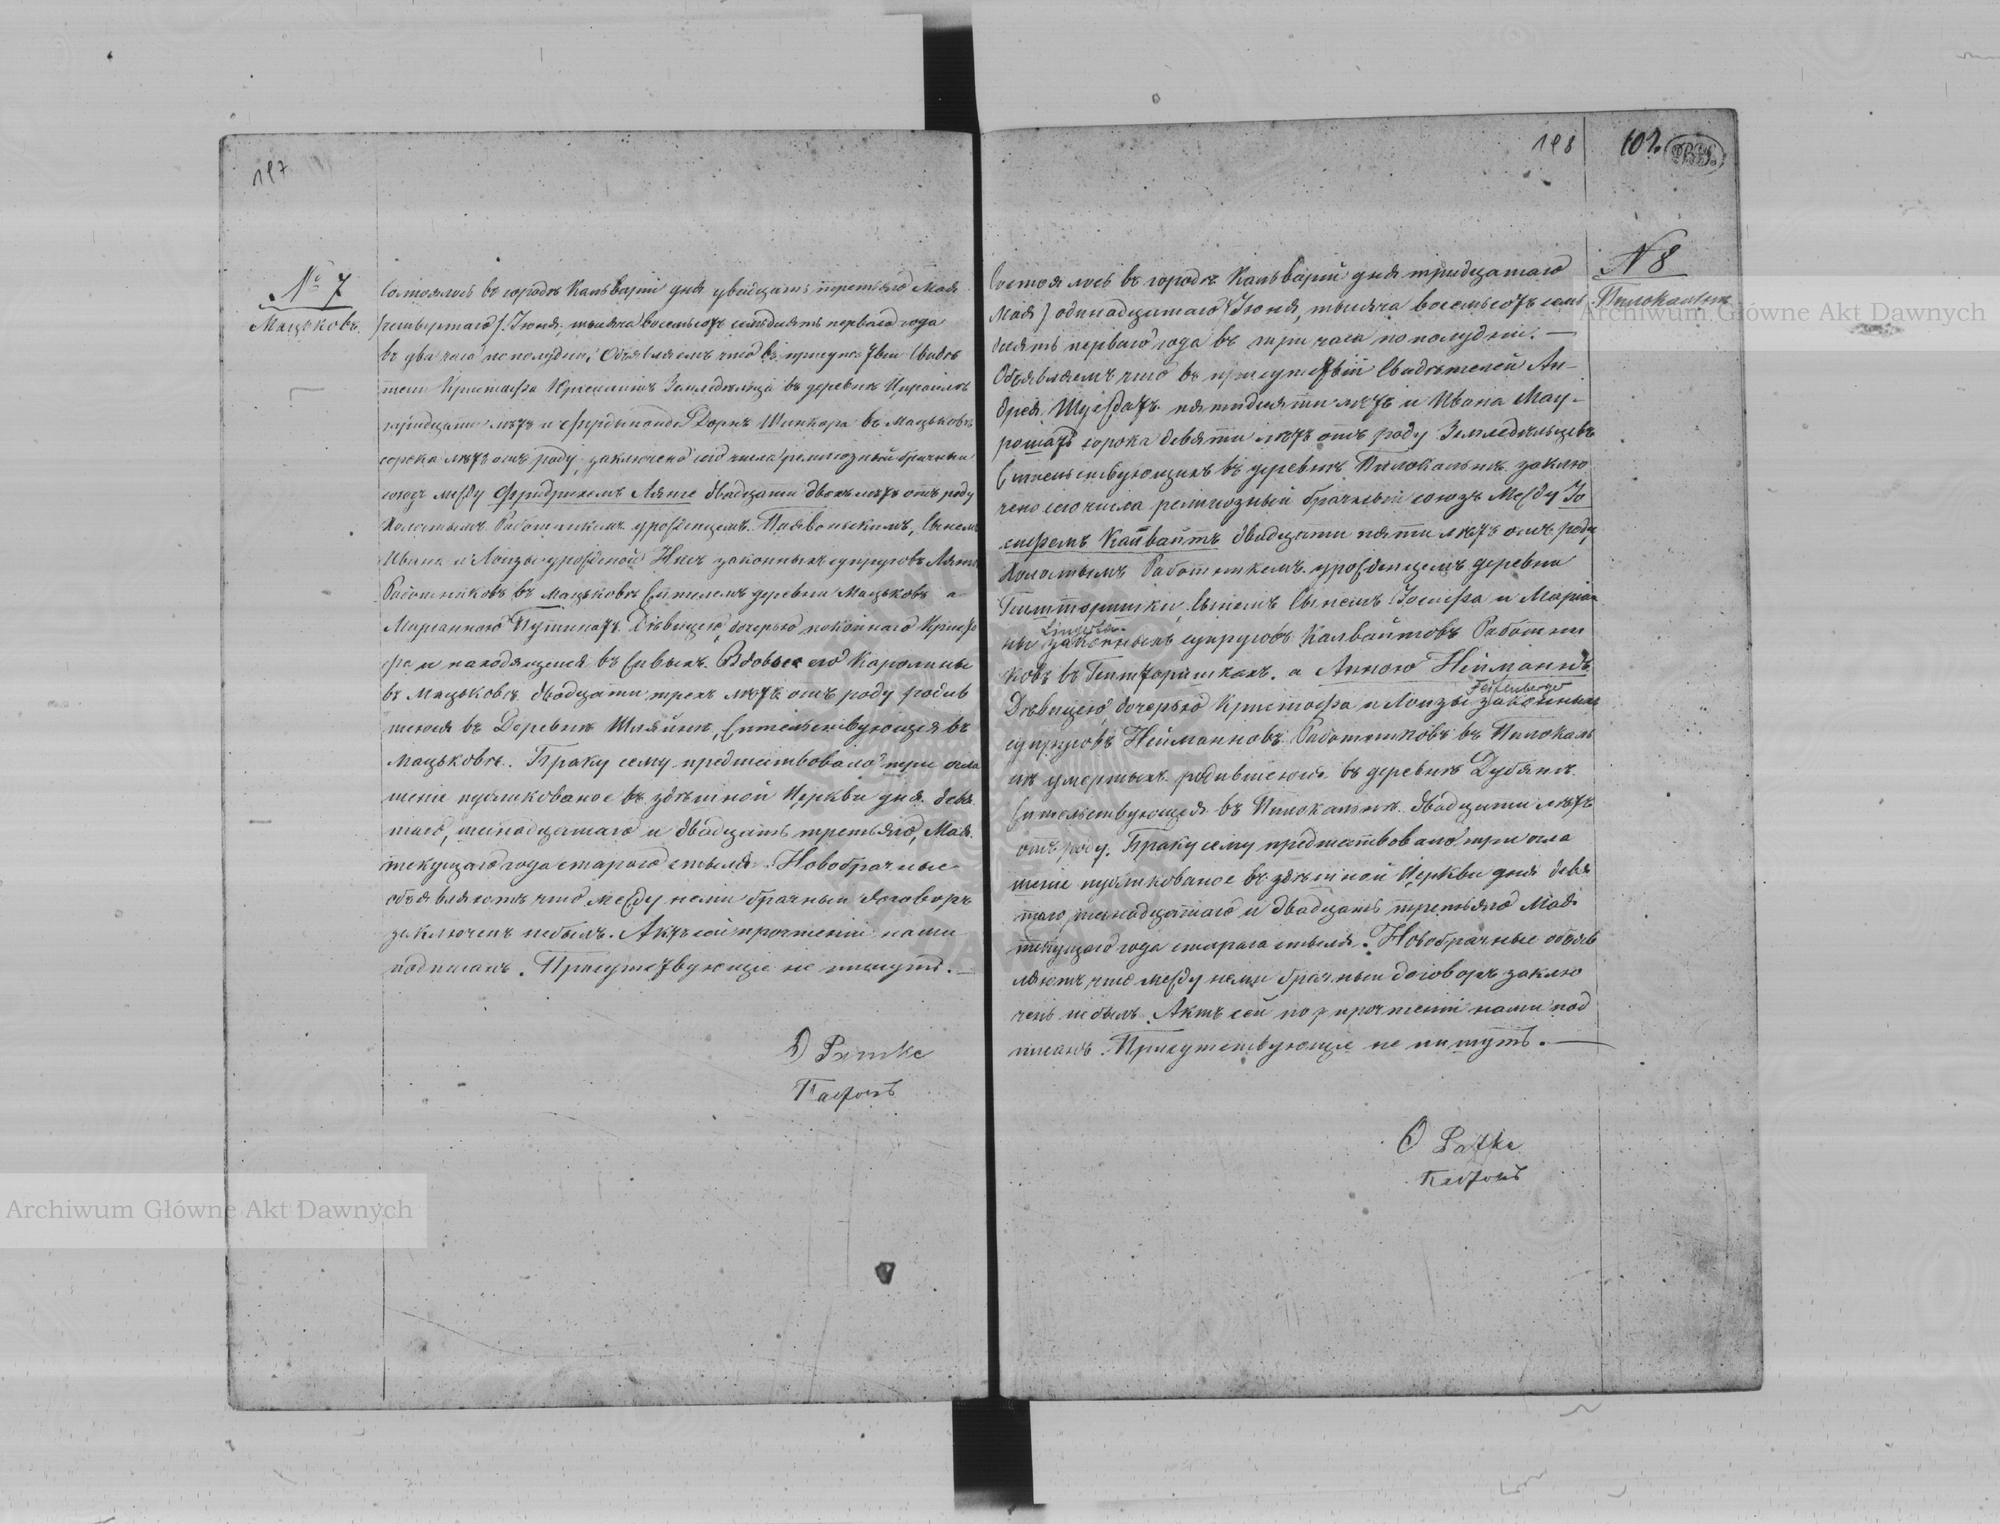 197
№ 7
Мацьковъ.
Состоялось въ городѣ Кальваріи дня двадцать третьяго Мая
/четвертаго/ Іюня, тысяча восемьсотъ семьдесятъ перваго года
въ два часа по полудни. Объявляемъ что въ присутствіи Свидѣ
телей Кристофа земледѣльца въ деревни
тридцати лѣтъ и Фердинанда Дорнъ Шинкора въ Мацьковѣ
сорока лѣтъ отъ роду, заключенъ сего числа религіозный брачный
союзъ между Фридрихомъ Ляше двадцати двохъ лѣтъ отъ роду
Холостымъ Работникомъ урожденцемъ Сыномъ
Ивана и Лоизы урожденой законныхъ супруговъ
Работниковъ въ Мацьковѣ Жителемъ деревни Мацьковъ а
Марianною Путинатъ Дѣвицею, дочерью покойнаго Кристо
фа и находящейся въ живыхъ Вдовы его Каролины
въ Мацьковѣ двадцати трехъ лѣтъ отъ роду родив
шеюся въ Деревни Шляйни, Жительствующея въ
Мацьковѣ. Браку сему предшествовало три огла
шенія публикованое въ здѣшной Церкви дня девя
таго, шенадцатаго и двадцать третьяго Мая
текущаго года стараго стыля. Новобрачные
объявляютъ что между ними брачный договоръ
заключенъ небылъ. Актъ сей прочтеніи нами
подписанъ. Присутствующіе не пишутъ.
Пасторъ
198
102.
N 8
Пилокальни
Состоялось въ городѣ Кальваріи дня тридцатаго
Мая / одинадцатаго / Іюня, тысяча восемьсотъ семь
десятъ перваго года въ три часа по полудни. —
Объявляемъ что въ присутствіи Свидѣтелей Ан-
дрея пятидесяти лѣтъ и Ивана Мау-
рошатъ сорока девяти лѣтъ отъ роду Земледѣльцевъ
Жительствующихъ въ деревнѣ Пилокальни заклю
чено сего числа религіозный брачный союзъ Между Іо
сифомъ Калвайтъ двадцати пяти лѣтъ отъ роду
Холостымъ Работникомъ урожденцемъ деревни
Сыномъ Іосифа и Маріан
ны законныхъ супруговъ Калвайтовъ Работни
ковъ въ а Анною Нейманнъ
Дѣвицею, дочерью Кристофа и Лоизы законныхъ
супруговъ Нейманновъ Работниковъ въ Пилокаль
ни умершихъ родившеюся въ деревнѣ
Жительствующея въ Пилокальни двадцати лѣтъ
отъ роду. Браку сему предшествовало три огла
шенія публикованое въ здѣшной Церкви дня девя
таго, шенадцатаго и двадцать третьяго Мая
текущаго года стараго стыля. Новобрачные объяв
ляютъ что между ними брачный договоръ заклю
ченъ небылъ. Актъ сей по прочтеніи нами под
писанъ. Присутствующіе не пишутъ. —
Пасторъ
Archiwum Główne Akt Dawnych
Archiwum Główne Akt Dawnych